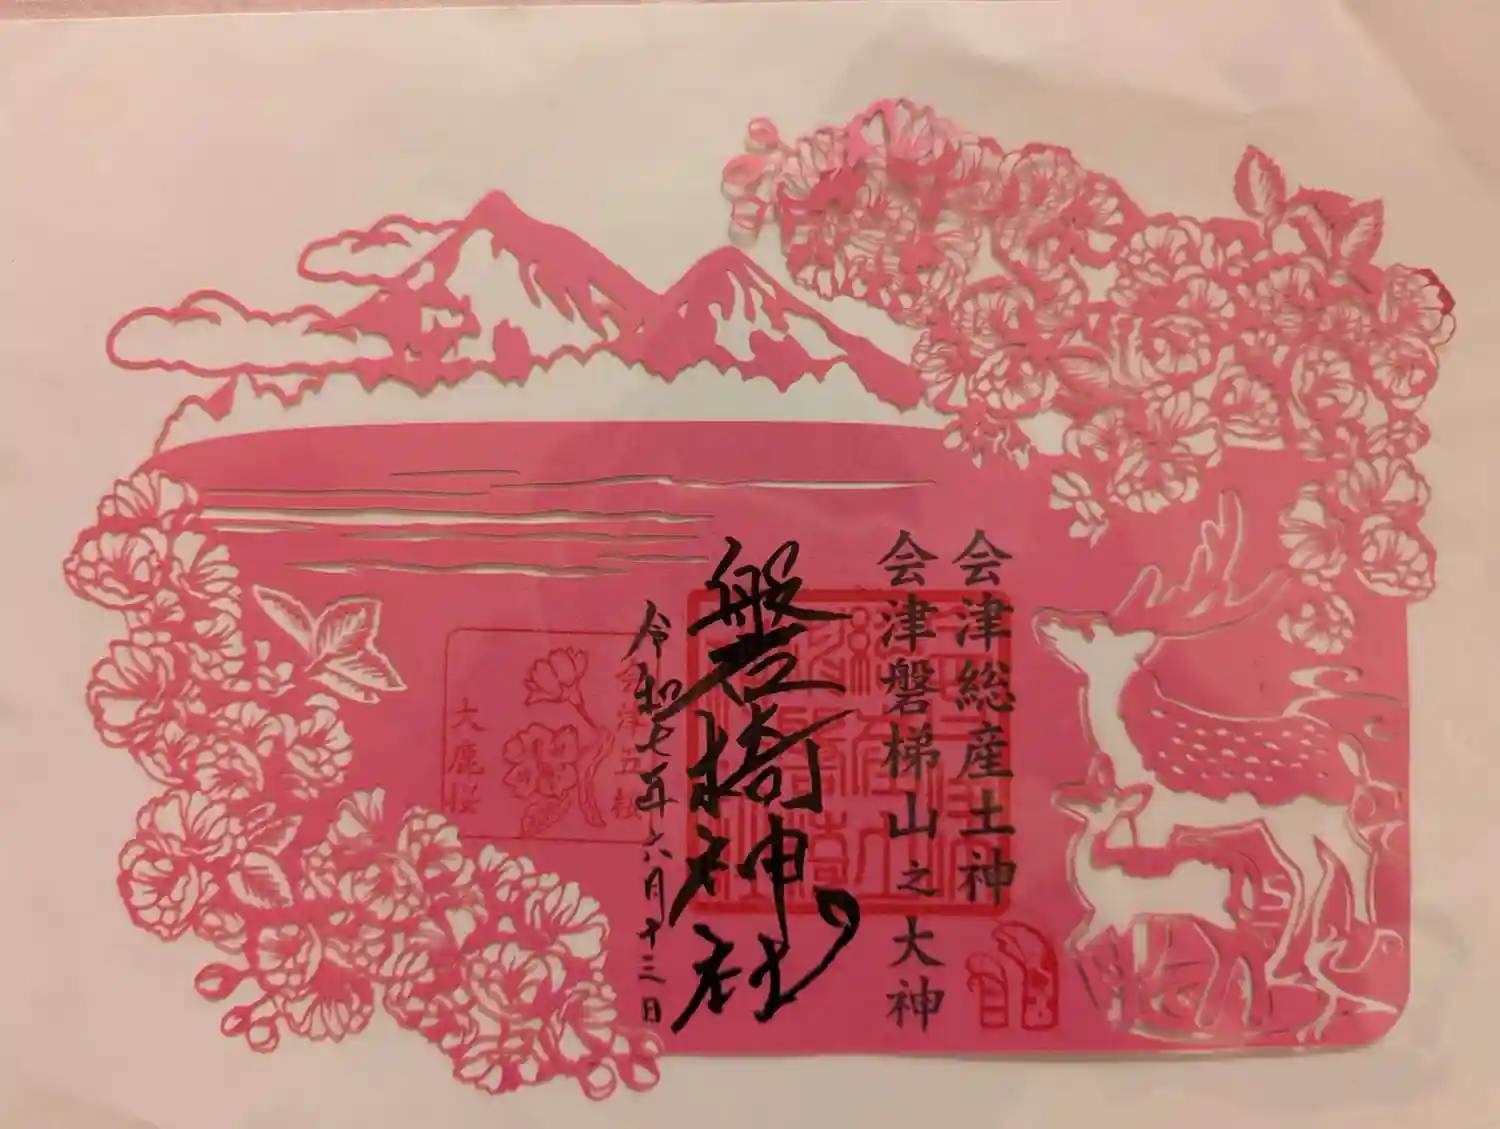 会津総産土神
会津磐梯山之大神
磐椅神社
令和七年六月十三日
会津五桜
大鹿桜